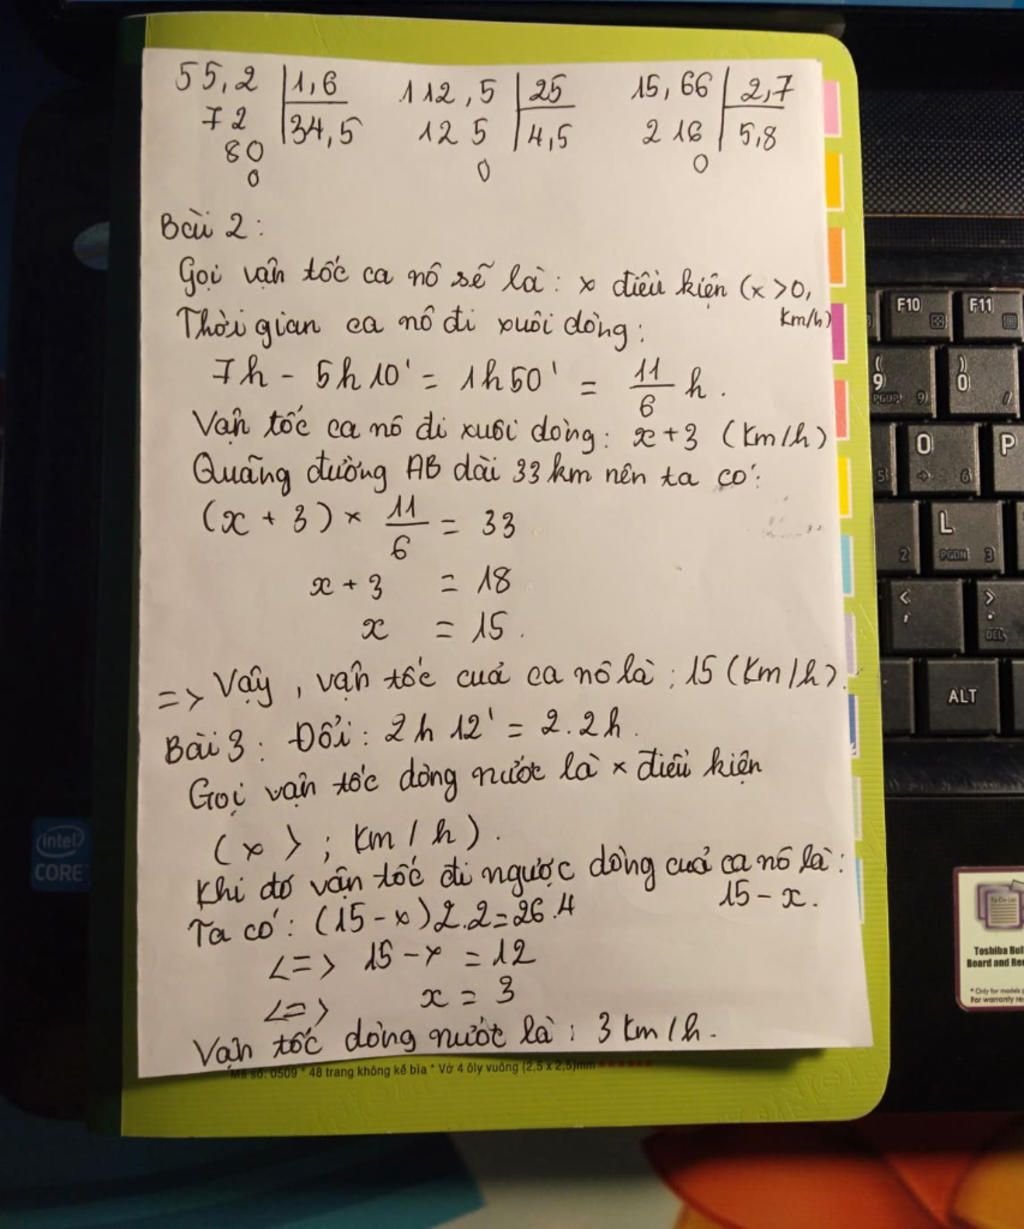 55,2 | 1,6
72 | 34,5
80
0
112,5 | 25
12 5 | 4,5
0
15,66 | 2,7
2 16 | 5,8
0
Bài 2:
Gọi vận tốc ca nô sẽ là: x điều kiện (x >0,
km/h)
Thời gian ca nô đi xuôi dòng:
7h - 5h10' = 1h50' = 11/6 h.
Vận tốc ca nô đi xuôi dòng: x+3 (km/h)
Quãng đường AB dài 33 km nên ta có:
(x + 3) × 11/6 = 33
x + 3 = 18
x = 15.
=> Vậy, vận tốc cuả ca nô là: 15 (km/h).
Bài 3: Đổi: 2h 12' = 2.2h.
Gọi vận tốc dòng nước là x điều kiện
(x > ; km/h).
Khi đó vận tốc đi ngược dòng cuả ca nô là:
15 - x.
Ta có: (15-x)2.2=26.4
<=> 15-x = 12
<=> x = 3
Vận tốc dòng nước là: 3 km/h.
Mã số: 0509 * 48 trang không kể bìa * Vở 4 ôly vuông (2,5 x 2,5)mm
intel
CORE
F10
F11
(
9
PGUP
9
)
0
/
O
6
P
5
L
PGDN
3
2
<
,
>
.
DEL
ALT
Toshiba Bul
Board and Re
* Only for models
For warranty re